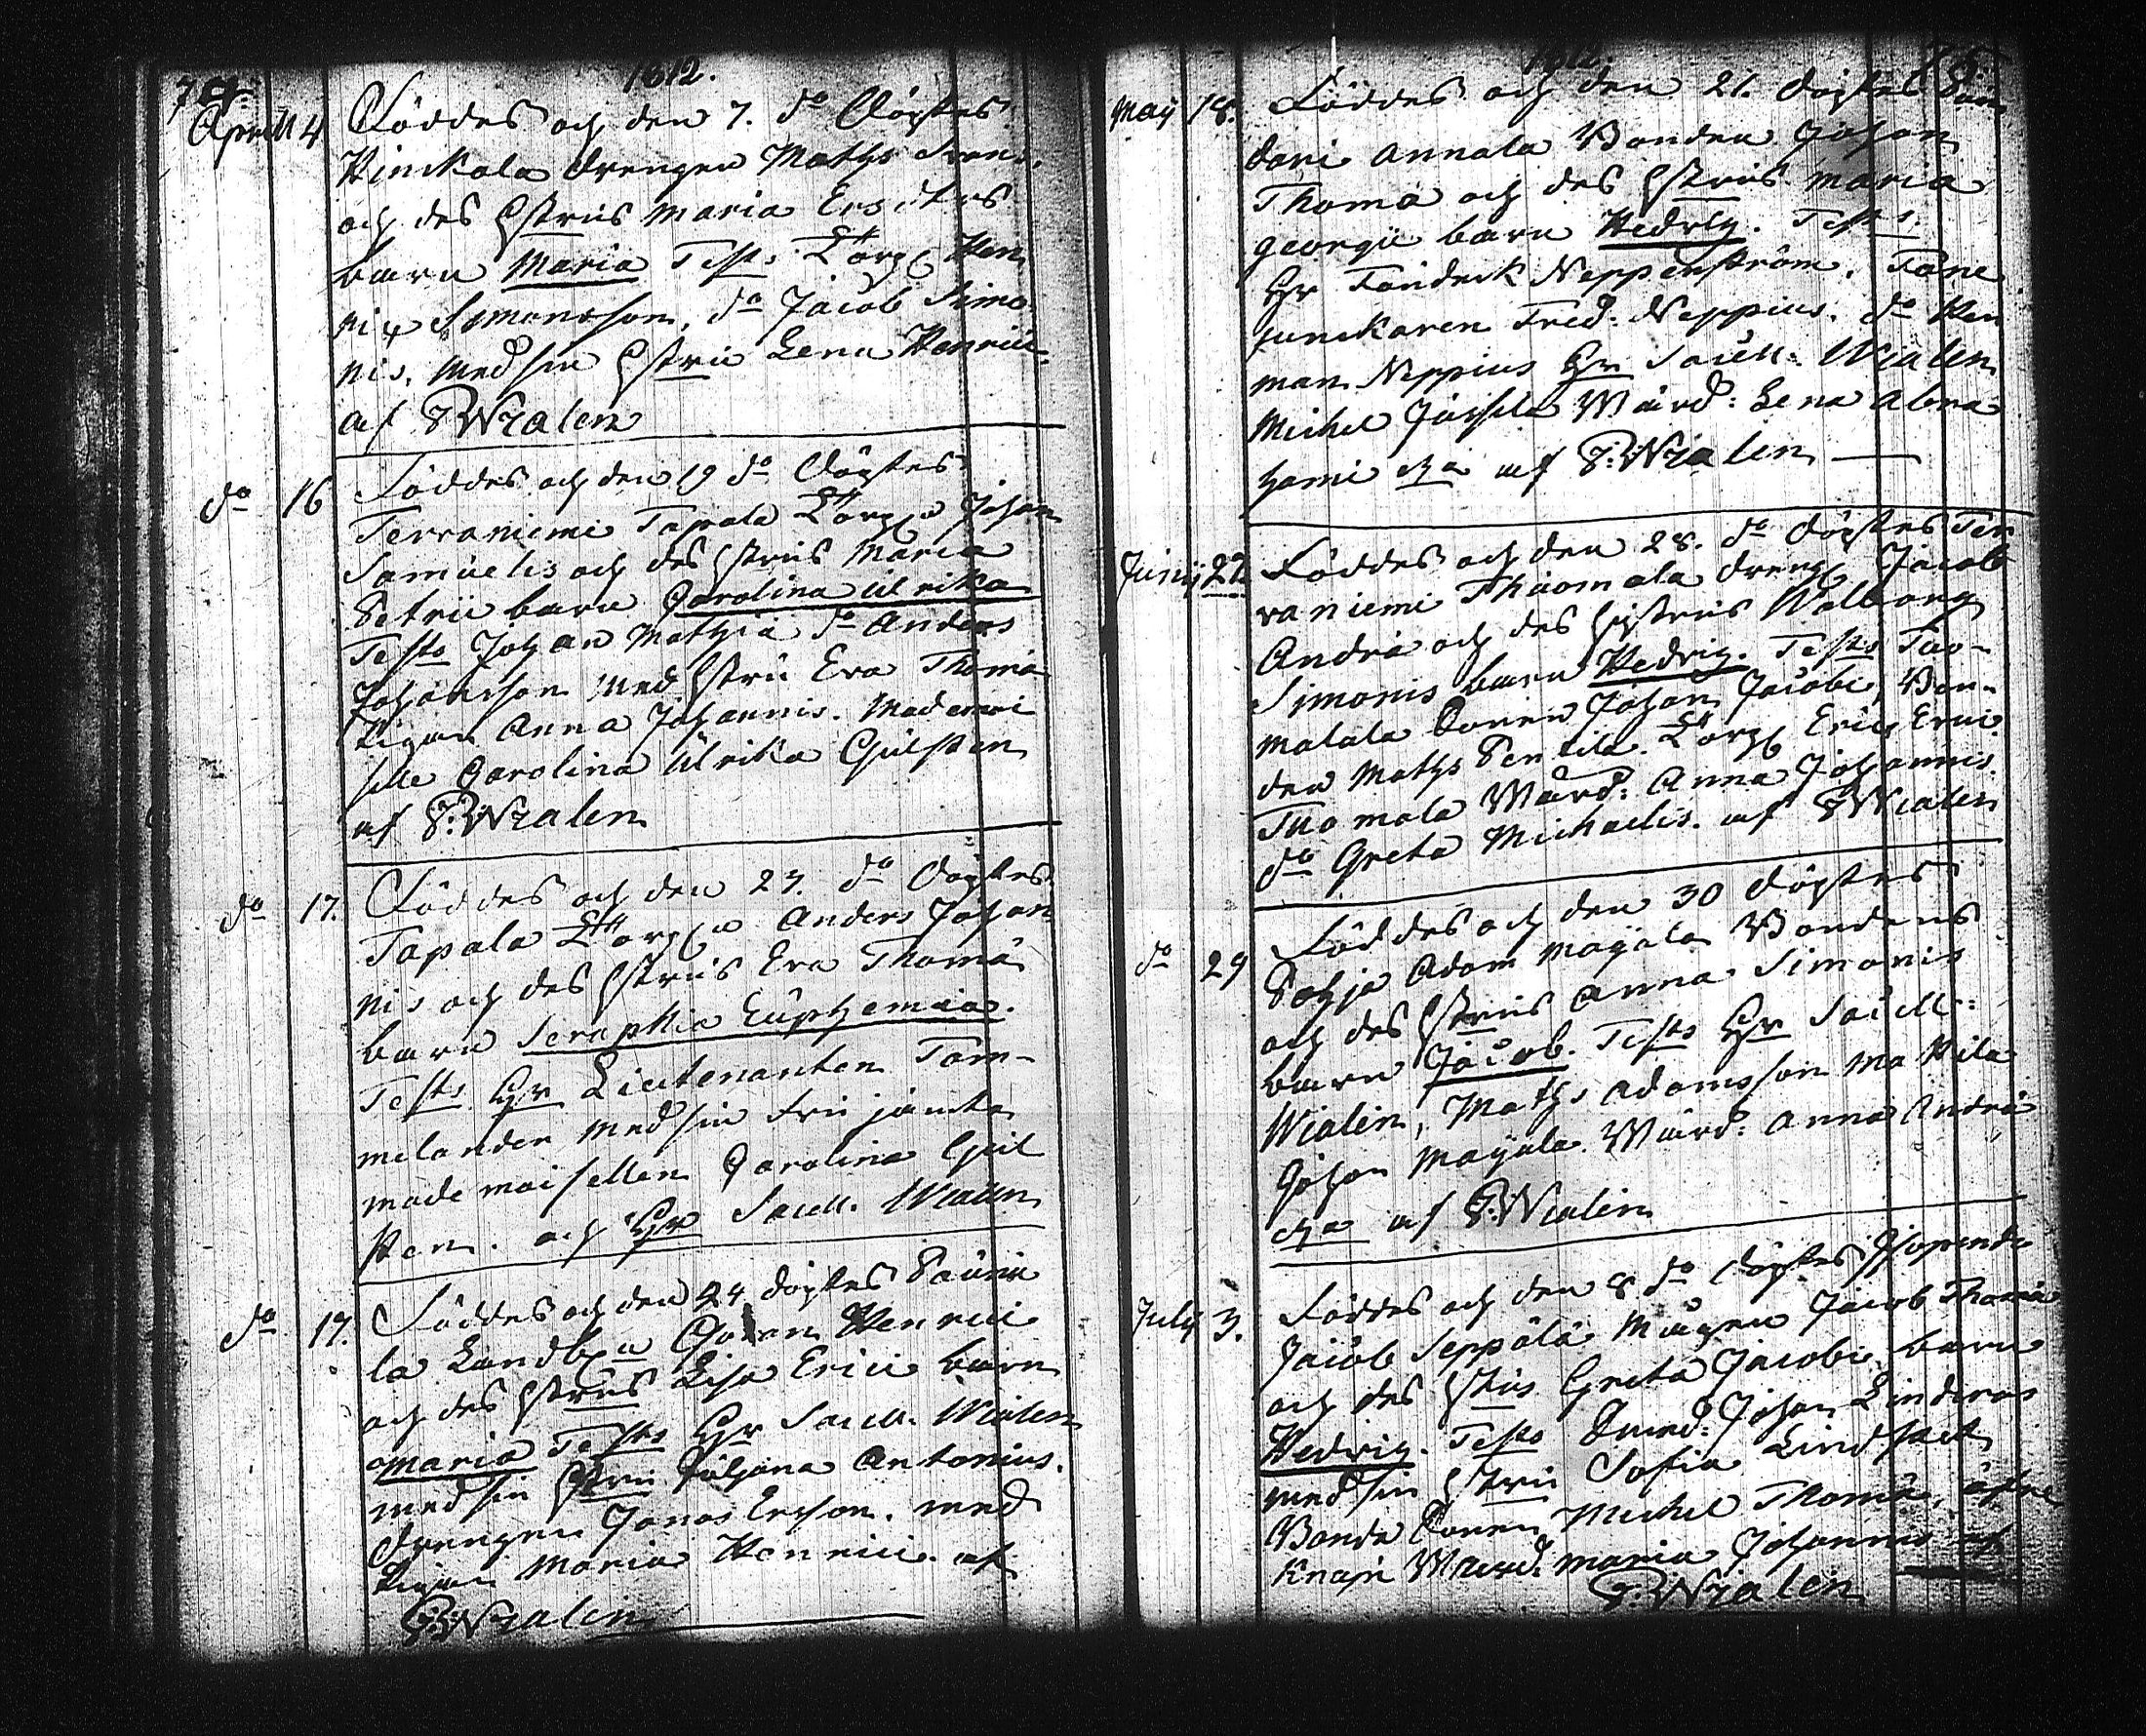 74.
1812.
Aprill 4 Föddes och den 7. do Döptes
Hinckala drengen Mathz Svens.
och des Hstrus Maria Ersdters
barn Maria Test: Torp: Hen
rix Simonsson, do Jacob Simo
nis, med sin Hstru Lena Henrici
af P Wialen
do 16 Föddes och den 19 do Döptes
Terraniemi Tapala Torp: Johan
Samuelis och des Hstrus Maria
Petri barn Carolina Ulrika
Testes Johan Mathiæ do Anders
Johansson med Hstru Eva Thomæ
Pigan Anna Johannis. Mademoi
selle Carolina Ulrika
af P: Wialen
do 17. Föddes och den 23. do Döptes
Tapala Torp: Anders Johan
nis och des Hstrus Eva Thomæ
barn Seraphia Euphemia.
Testes Hr Lieutenanten Tam-
melander med sin Fru jämte
mademoisellen Carolina
och Hr Sacell. Wialen
do 19. Föddes och den 24 döptes Pauni
la Landb: Göran Henrici
och des Hstrus Lisa Erici barn
Maria Testes Hr Sacell. Wialen
med sin Hstru Juliana Antonius.
drengen Jonas Ersson. med
Pigan Maria Henrici. af
P: Wialen
1812. 75.
May 18. Föddes och den 21. döptes
dari Annala Bonden Johan
Thomæ och des Hstrus Maria
Georgii barn Hedvig. Testes
Hr Fendrik Neppenström, Fane
junckaren Fred: Neppius. do Her
man Neppius Hr Sacell: Wialen
Michel Jussila Värd: Lena Abra
hami &c af P: Wialen
Junij 22 Föddes och den 28. do döptes Ter
raniemi Thuomala dreng: Jacob
Andræ och des Hustrus Walborg
Simonis barn Hedvig. Testes Tuo-
malala Sonen Johan Jacobi, Bon-
den Mathz Pentila. Torp: Eric Erici
Tuomala Värd: Anna Johannis.
do Greta Michaelis. af P Wialen
do 29 Föddes och den 30 döptes
Pohja Adam Mayala Bondens
och des Hstrus Anna Simonis
barn Jacob. Testes Hr Sacell:
Wialen, Mathz Adamsson Mattila
Johan Mayala. Värd: Anna Andræ
&c af P: Wialen
July 3. Föddes och den 8 do döptes
Jacob Seppälä Mågen Jacob Thomæ
och des Hstrus Greta Jacobi barn
Hedvig. Testes Johan Linderos
med sin Hstru Sofia Lindstet
Bonda Sonen Michel Thomæ,
Knapi Värd: Maria Johannis af
P: Wialen